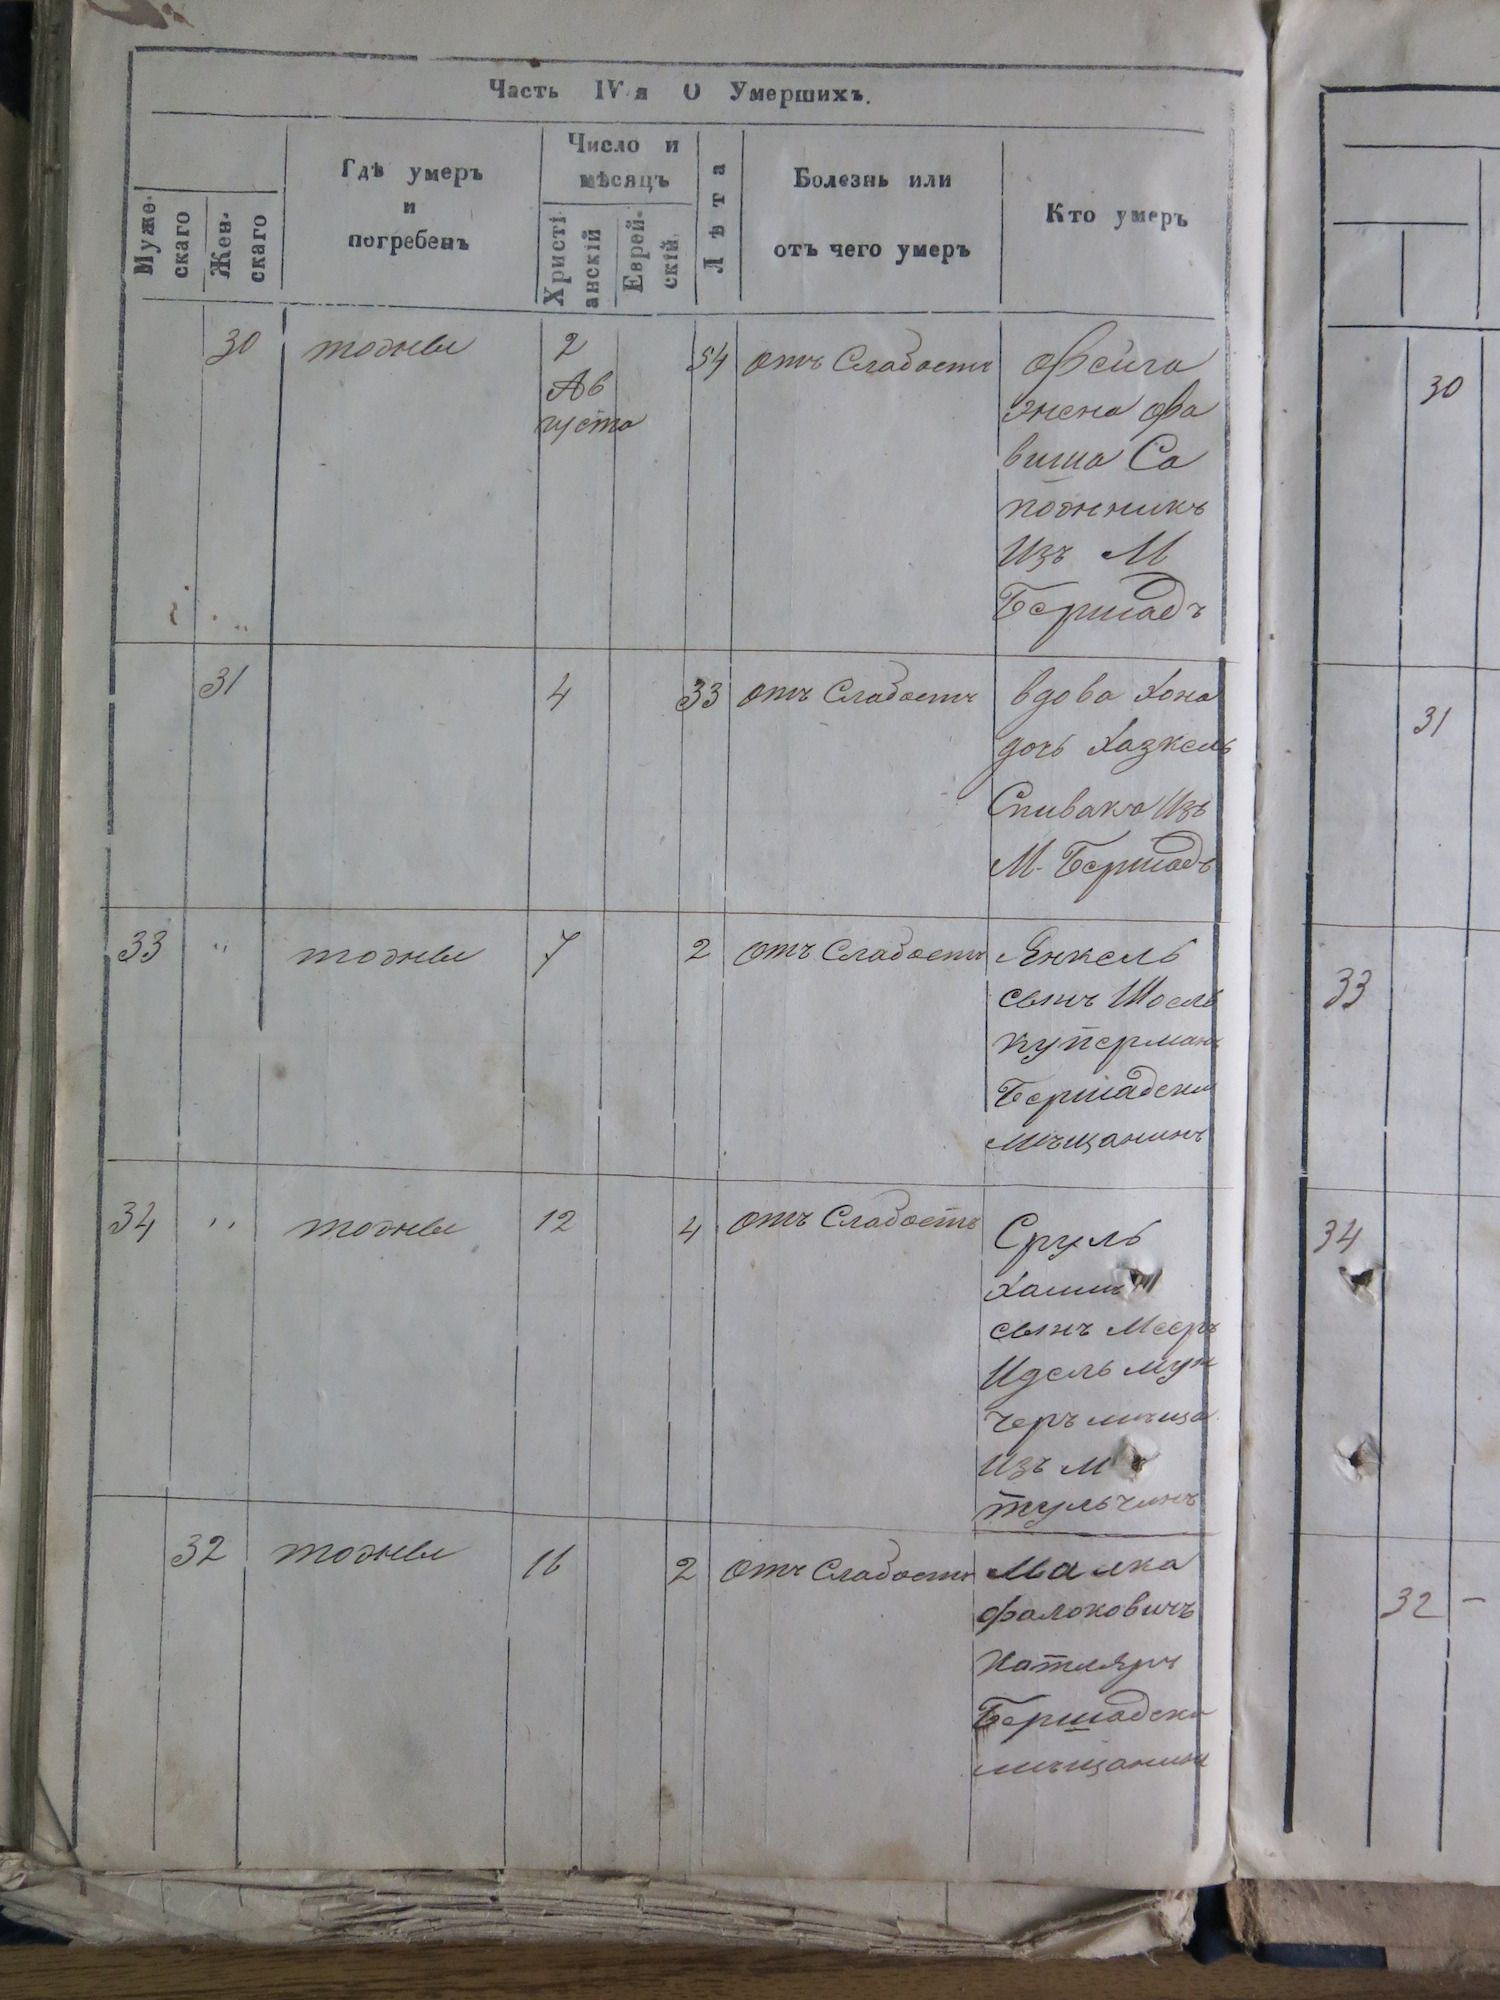 Часть IV я О Умершихъ.
Муже-
скаго
Жен-
скаго
Гдѣ умеръ
и
погребенъ
Число и
мѣсяцъ
Христі-
анскій
Еврей-
скій
Лѣта
Болезнь или
отъ чего умеръ
Кто умеръ
30 тожны 2 54 отъ Слабости Фейга
Ав жена Фа
густа виша Са
пожникъ
Изъ М
Бершадъ
31 4 33 отъ Слабости вдова Хона
дочь Хазкель
Спивака Изъ
М. Бершадъ
33 " тожны 7 2 отъ Слабости Янкель
сынъ Шоель
Куперманъ
Бершадски
мѣщанинъ
34 " тожны 12 4 отъ Слабость Сруль
Хаим
сынъ Мееръ
Идель мун
черъ мѣща
Изъ М
тульчинъ
32 тожны 16 2 отъ Слабости Малка
Фалоковичъ
Котляръ
Бершадска
мѣщанин
30
31
33
34
32 —